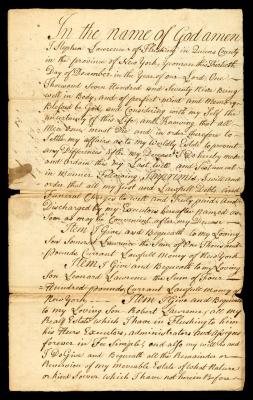 In the name of God amen
I Stephen Lawrence of Flushing in Queens County
in the province of New York, Yeoman this
Day of December in the Year of our Lord One
Thousand Seven Hundred and Seventy Being
well in Body, and of perfect mind and Memory
Blessed be God, and Considering with my Self the
uncertainty of this Life, and Knowing that all
Men Must Die and in order therefore to
Settle my affairs as to my Worldly Estate to prevent
any Differences after my Decease I Do hereby make
and Ordain this my Last Will and Testament
in Manner Following and
order that all my Just and Lawfull Debts and
Funeral Charges be well and Truly paid and
Discharged by my Executors hereafter named as
Soon as may be Convenient after my Decease
Item I Give and Bequeath to my Loving
Son Lawrence the Sum of
pounds Currant Lawfull Money of New York
Item I Give and Bequeath to my Loving
Son Leonard Lawrence the Sum of
Hundred pounds Currant Lawfull Money of
New York Item I Give and Bequeath
to my Loving Son Robert Lawrence, all my
Real Estate which I have in Flushing to him
his Heirs Executors, administrators and assigns
forever in Fee Simple, and also my will is and
I Do Give and Bequeath all the Remainder or
Reversion of my moveable Estate of what Nature
or kind Soever which I have not herein Before